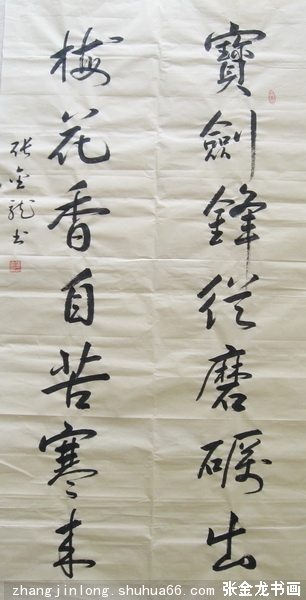 寶劍鋒從磨礪出
梅花香自苦寒来
张金龍书
zhangjinlong.shuhua66.com 张金龙书画